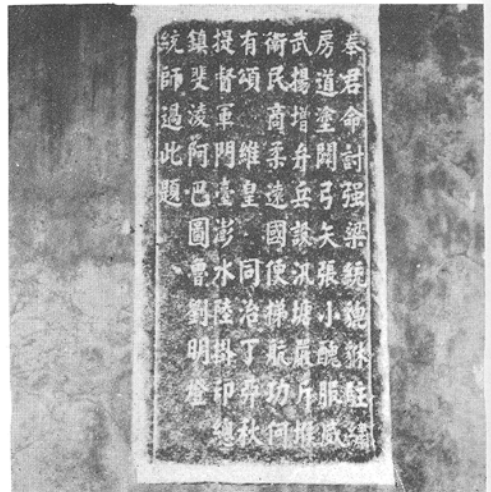 奉君命討强梁統貔貅駐繡
房道塗闢弓矢張小醜服威
武揚增弁兵設汛塘嚴斥堠
衛民商柔遠國便梯航功何
有頌 維皇 同治丁卯秋
提督軍門臺澎水陸掛印總
鎮斐淩阿巴圖魯劉明燈
統師過此題